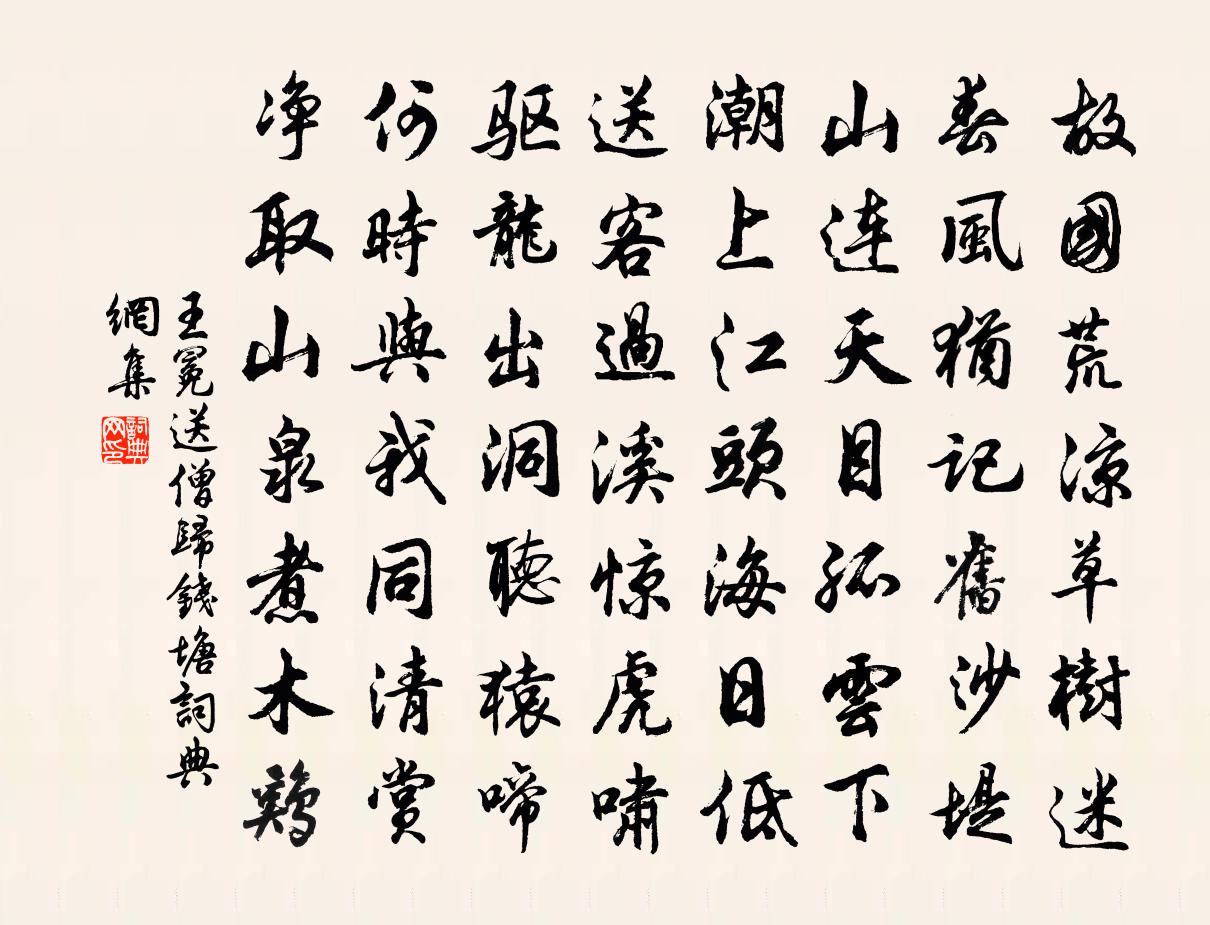 故國荒涼草樹迷
春風猶记舊沙堤
山连天目孤雲下
潮上江頭海日低
送客過溪惊虎嘯
驱龍出洞聽猿啼
何時與我同清赏
净取山泉煮木鷄
王冕送僧歸錢塘詞典
網集
詞典网印